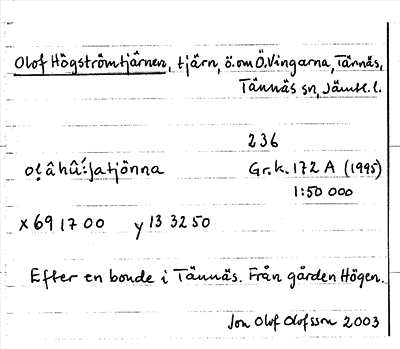 Olof Högströmtjärnen, tjärn, ö. om Ö. Vingarna, Tännäs,
Tännäs sn, Jämtl. l.
236
oḷâhû́:ʃatjönna Gr.k. 172 A (1995)
1:50 000
x 69 17 00 y 13 32 50
Efter en bonde i Tännäs. Från gården Högen.
Jon Olof Olofsson 2003